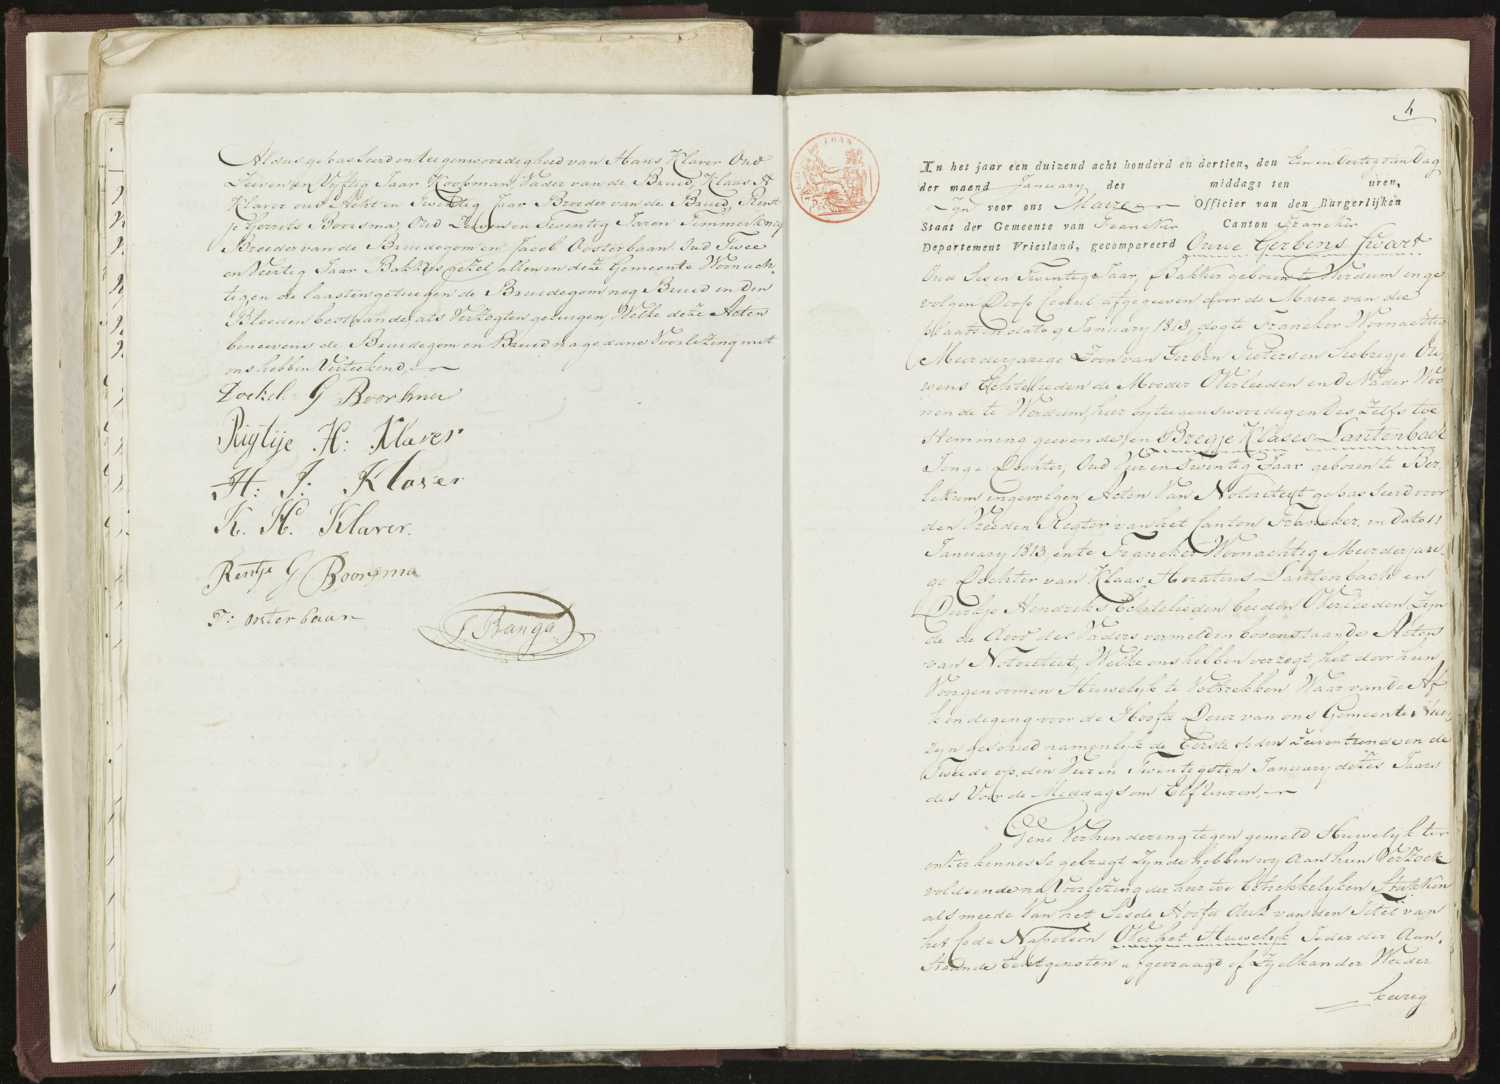 Aldus gepasseerd en tegenwoordigheid van Hans Klaver Oud
Zeven en Vyftig Jaar Koopman, Vader van de Bruid, Klaas H
Klaver oud Acht en Twintig Jaar Broeder van de Bruid, Rent
je Gerrits Boorsma, Oud Zeven en Twentig Jaren Timmerknegt
Broeder van de Bruidegom en Jacob Oosterbaan Oud Twee
en Veertig Jaar Bakkers gezel allen in deze Gemeente Woonach
tig en de laasten getuigen de Bruidegom nog Bruid in den
Bloeden bestaande als Verzogten getuigen, Welke deze Acten
benevens de Bruidegom en Bruid na gedane Voorlezing met
ons hebben Verteekend.
G Boorsma
Rigtije H: Klaver
H: J: Klaver
K. H. Klaver.
Rentje G Boorsma
J: oosterbaan
Banga
4
In het jaar een duizend acht honderd en dertien, den Een en dertigsten Dag
der maend January des middags ten uren,
Zyn voor ons Maire Officier van den Burgerlijken
Staat der Gemeente van Franeker Canton Franeker
Departement Vriesland, gecompareerd Ouwe Gerbens Zwart
Oud Ses en Twentig Jaar, Bakker geboren te Werdum inge
volgen Doop Ceduul afgegeven door de Maire van die
Plaats in dato 9 January 1813, dogte Franeker Woonachtig
Meerderjarige Zoon van Gerben Pieters en Siebrigje Ou
wens Echtelieden de Moeder Overleeden en d Vader Woo
nende te Werdum, hier by tegenswoordig en des zelfs toe
stemming gevende, en Bregje Klases Lautenbach
Jonge Dochter, Oud Vier en Twentig Jaar geboren te Ber
lekum ingevolgen Acten Van Notoriteyt gepasseerd voor
den Vreeden Regter van het Canton Franeker, in Dato 11
January 1813, en te Franeker Woonachtig Meerderjari
ge Dochter van Klaas Horatius Lautenbach en
Durkje Hendriks Echtelieden beiden Overleeden Zyn
de de dood des Vaders vermelden bovenstaande Acten
van Notoriteit, Welke ons hebben verzogt, het door hun
Voorgenomen Huwelyk te Voltrekken Waar van de Af
kondiging voor de Hoofd Deur van ons Gemeente Huis
zyn geschied namenlyk de Eerste op den Zeventienden en de
Tweede op den Vier en Twentigsten January dezes Jaars
des Voor de Middags om Elf Uuren,
Gene Verhindering tegen gemeld Huwelyk ter
onzer kennesse gebragt Zynde hebben wy aan hun Verzoek
voldoende na Voorlezing der hier toe betrekkelyken Stukken
als meede Van het Sesde Hoofd Stuk van den Titel van
het Code Napoleon Over het Huwelyk Ieder der Aan,
staande Echtgenoten afgevraagd of Zy elkander Weder
keerig